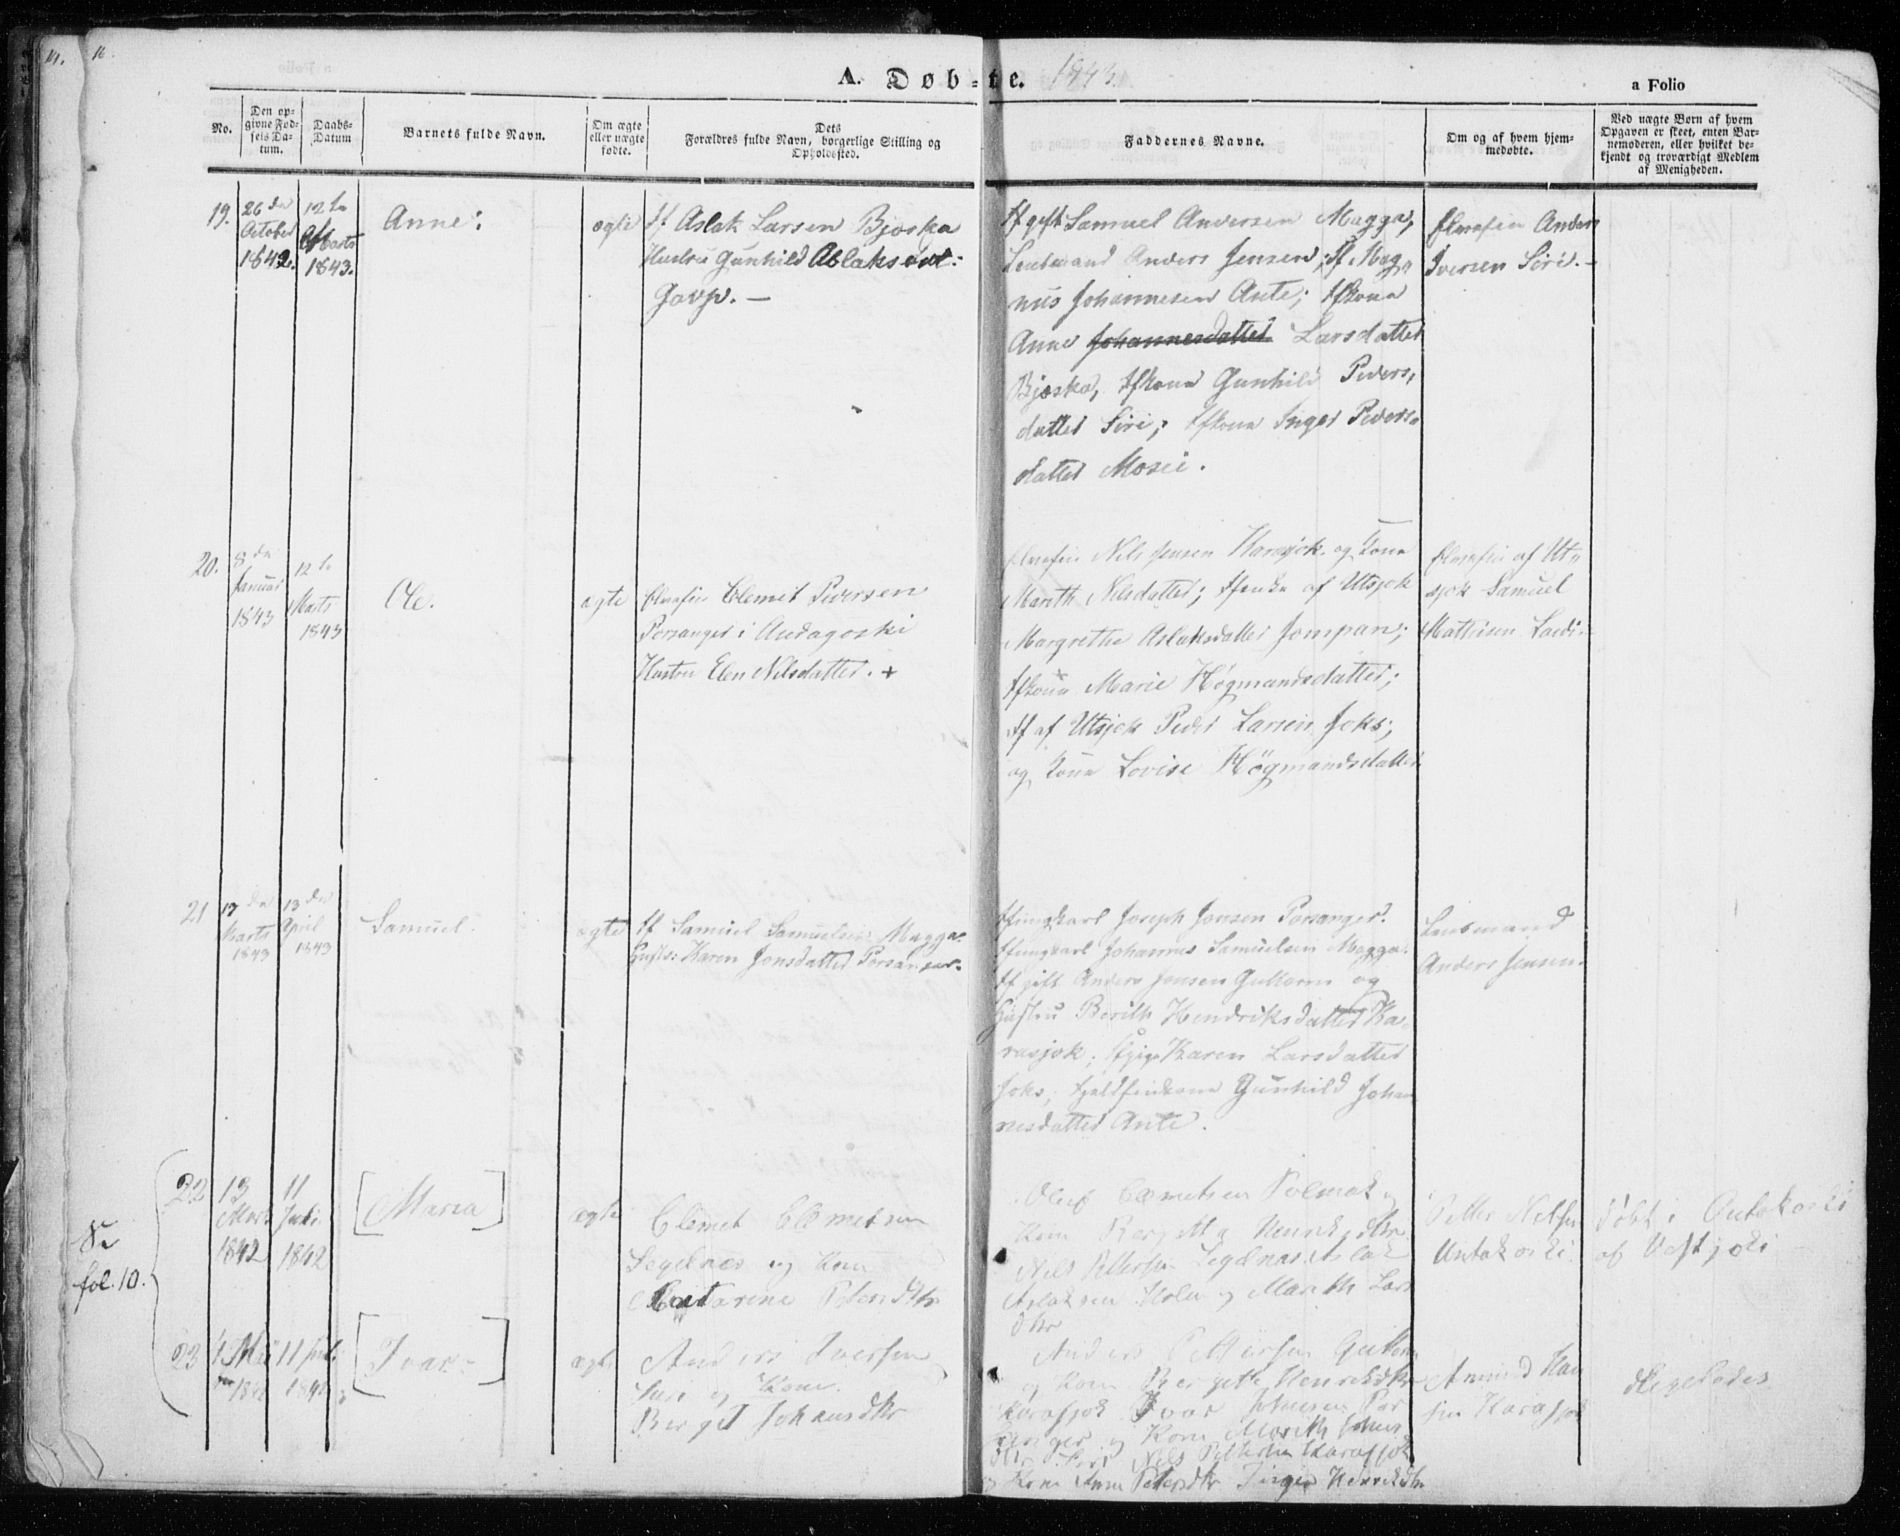 A. Døb-te. 1843.
a Folio
No.
Den opgivne Fødsels Datum.
Daabs-Datum
Barnets fulde Navn.
Om ægte eller uægte fødte.
Dets Forældres fulde Navn, borgerlige Stilling og Opholdssted.
Faddernes Navne.
Om og af hvem hjemmedøbte.
Ved uægte Børn af hvem Opgaven er skeet, enten Barnemoderen, eller hvilket bekjendt og troværdigt Medlem af Menigheden.
19.
26de
October
1842.
12te
Marts
1843.
Anne:
ægte
Aslak Larsen Bjoska
Hustru Gunhild Aslaksdat:
Gavp. —
gift Samuel Andersen Magga,
Lensmand Anders Jensen; ff Mag-
nus Johannesen Ante; ffkone
Anne Johannesdatter Larsdatter
Bjoska, ffkone Gunhild Peders,
datter Siri; ffkone Inger Peders-
datter Mosei.
Elvefin Anders
Iversen Siri. —
20.
8de
Januar
1843
12te
Marts
1843
Ole.
ægte
Elvefin Clemet Pedersen
Porsanger i Audagoski
Hustru Elen Nilsdatter. +
Elvefin Nils Jensen Karasjok og Kone
Mareth Nilsdatter; ffenke af Utsjok
Margrethe Aslaksdatter Jompan;
ffkone Marie Högmandsdatter;
ff af Utsjok Peder Larsen Joks;
og Kone Lovise Högmandsdatter
Elvefin af Ut-
sjok Samuel
Mathisen
21
13de
Marts
1843
13de
April
1843
Samuel.
ægte
ff Samuel Samuelsen Magga.
Hustr: Karen Jonsdatter Porsanger.
ffungkarl Joseph Jonsen Porsanger.
ffungkarl Johannes Samuelsen Magga.
ff gift Anders Jensen Guttorm og
Hustru Berith Hendriksdatter Ka-
rasjok; ffpige Karen Larsdatter
Joks; fjeldfinkone Gunhild Johan
nesdatter Ante.
Lensmand
Anders Jensen.
Se
fol. 10.
22
13
Marts
1842
11
Juli
1842
[Maria]
ægte
Clemet Clemetsen
Segelnæs og Kone
Catarine Peters dttr
Oluf Clemetsen Polmak og
Kone Bergitta Henriksdttr
Nils Pettersen Segelnæs Aslak
Aslaksen Holm og Mareth Lars
dttr
Petter Nilsen
Untakoski
døbt i Outakoski
af
23
4 Mai
1842
11 Juli
1842
[Ivar]
ægte
Anders Iversen
Siri og Kone
Berget Johansdttr
Anders Pettersen Guttorm
og Kone Bergette Henriksdttr
Karasjok Ivar Johnsen Por
sanger og Kone Marith Johns
dttr Nils Pettersen Karasjok
og Kone Anne Petersdttr Inger Henriksdttr
Amund Han
sen Karasjok
ligeledes